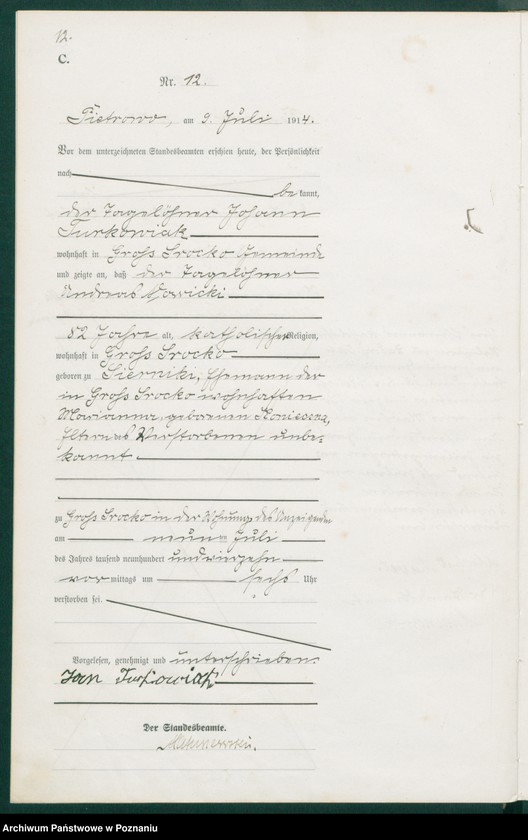 12.
C.
Nr. 12.
Pietrowo, am 9. Juli 1914.
Vor dem unterzeichneten Standesbeamten erschien heute, der Persönlichkeit
nach
be kannt,
der Tagelöhner Johann
Turkowiak
wohnhaft in Groß Srocko Gemeinde
und zeigte an, daß der Tagelöhner
Andreas Nowicki
82 Jahre alt, katholischer Religion,
wohnhaft in Groß Srocko
geboren zu Sierniki, Ehemann der
in Groß Srocko wohnhaften
Marianna, geborenen
Eltern des Verstorbenen unbe-
kannt.
zu Groß Srocko in der Wohnung des Anzeigenden
am neunten Juli
des Jahres tausend neunhundert undvierzehn
vor mittags um sechs Uhr
verstorben sei.
Vorgelesen, genehmigt und unterschrieben.
Jan Turkowiak
Der Standesbeamte.
Archiwum Państwowe w Poznaniu